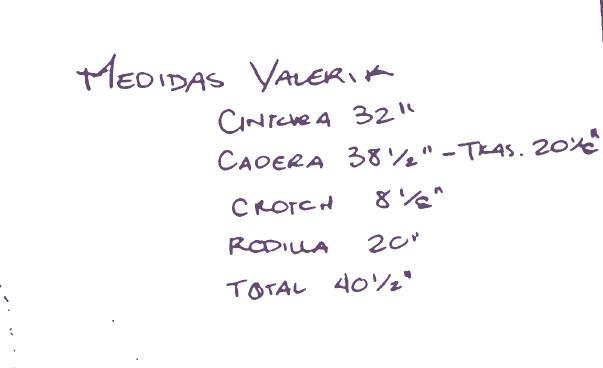 MEDIDAS VALERIA
CINTURA 32"
CADERA 38 1/2" - TRAS. 20 1/2"
CROTCH 8 1/2"
RODILLA 20"
TOTAL 40 1/2"